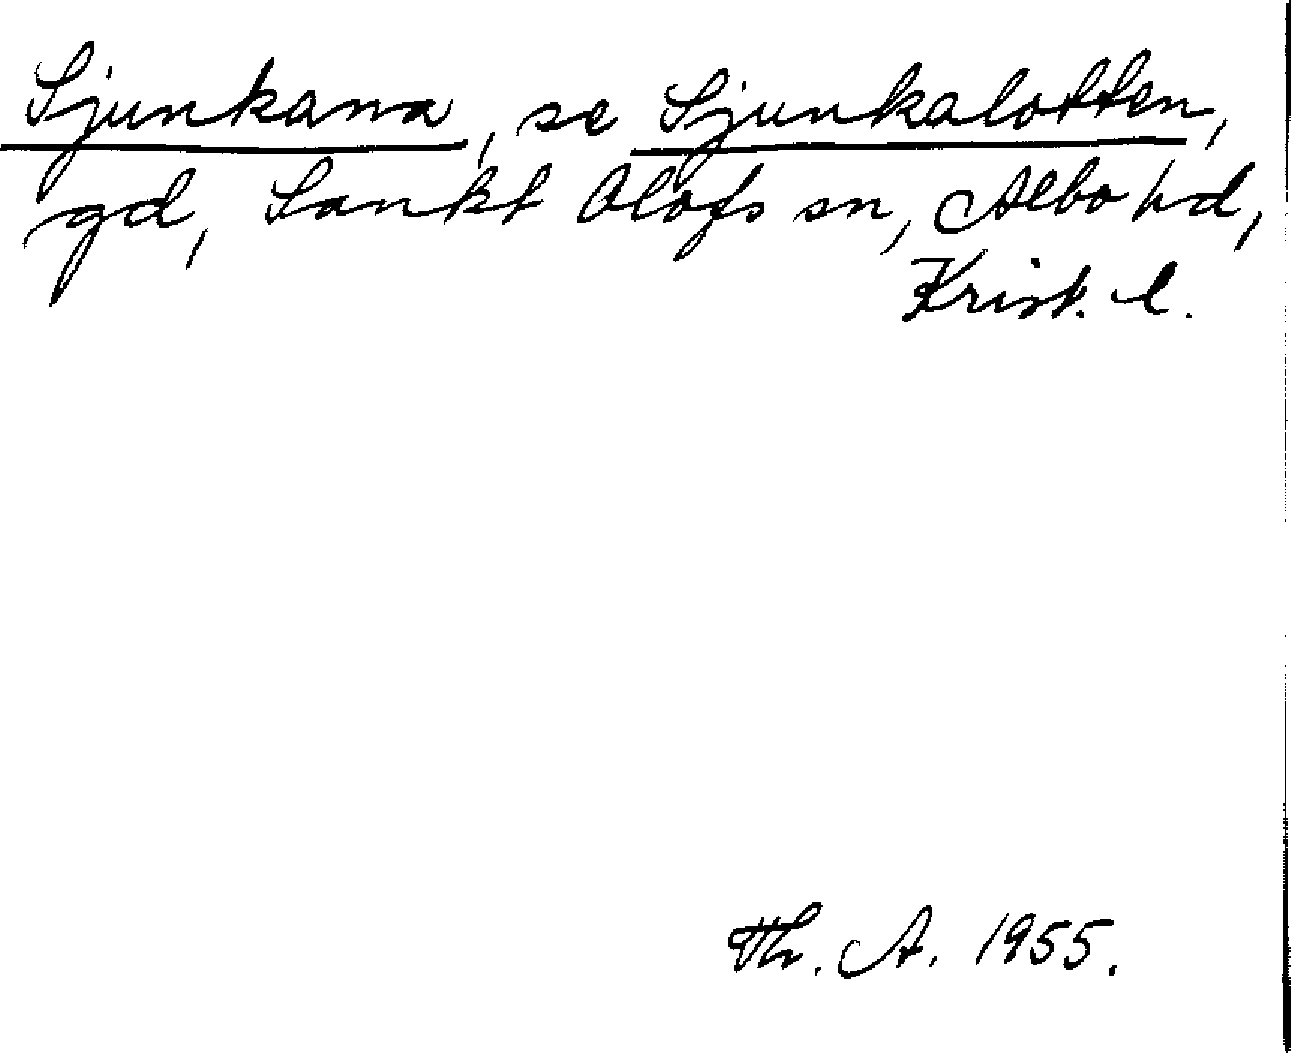 Sjunkana, se Sjunkalotten,
gd, Sankt Olofs sn, Albo hd,
Krist. l.
Th. A. 1955.